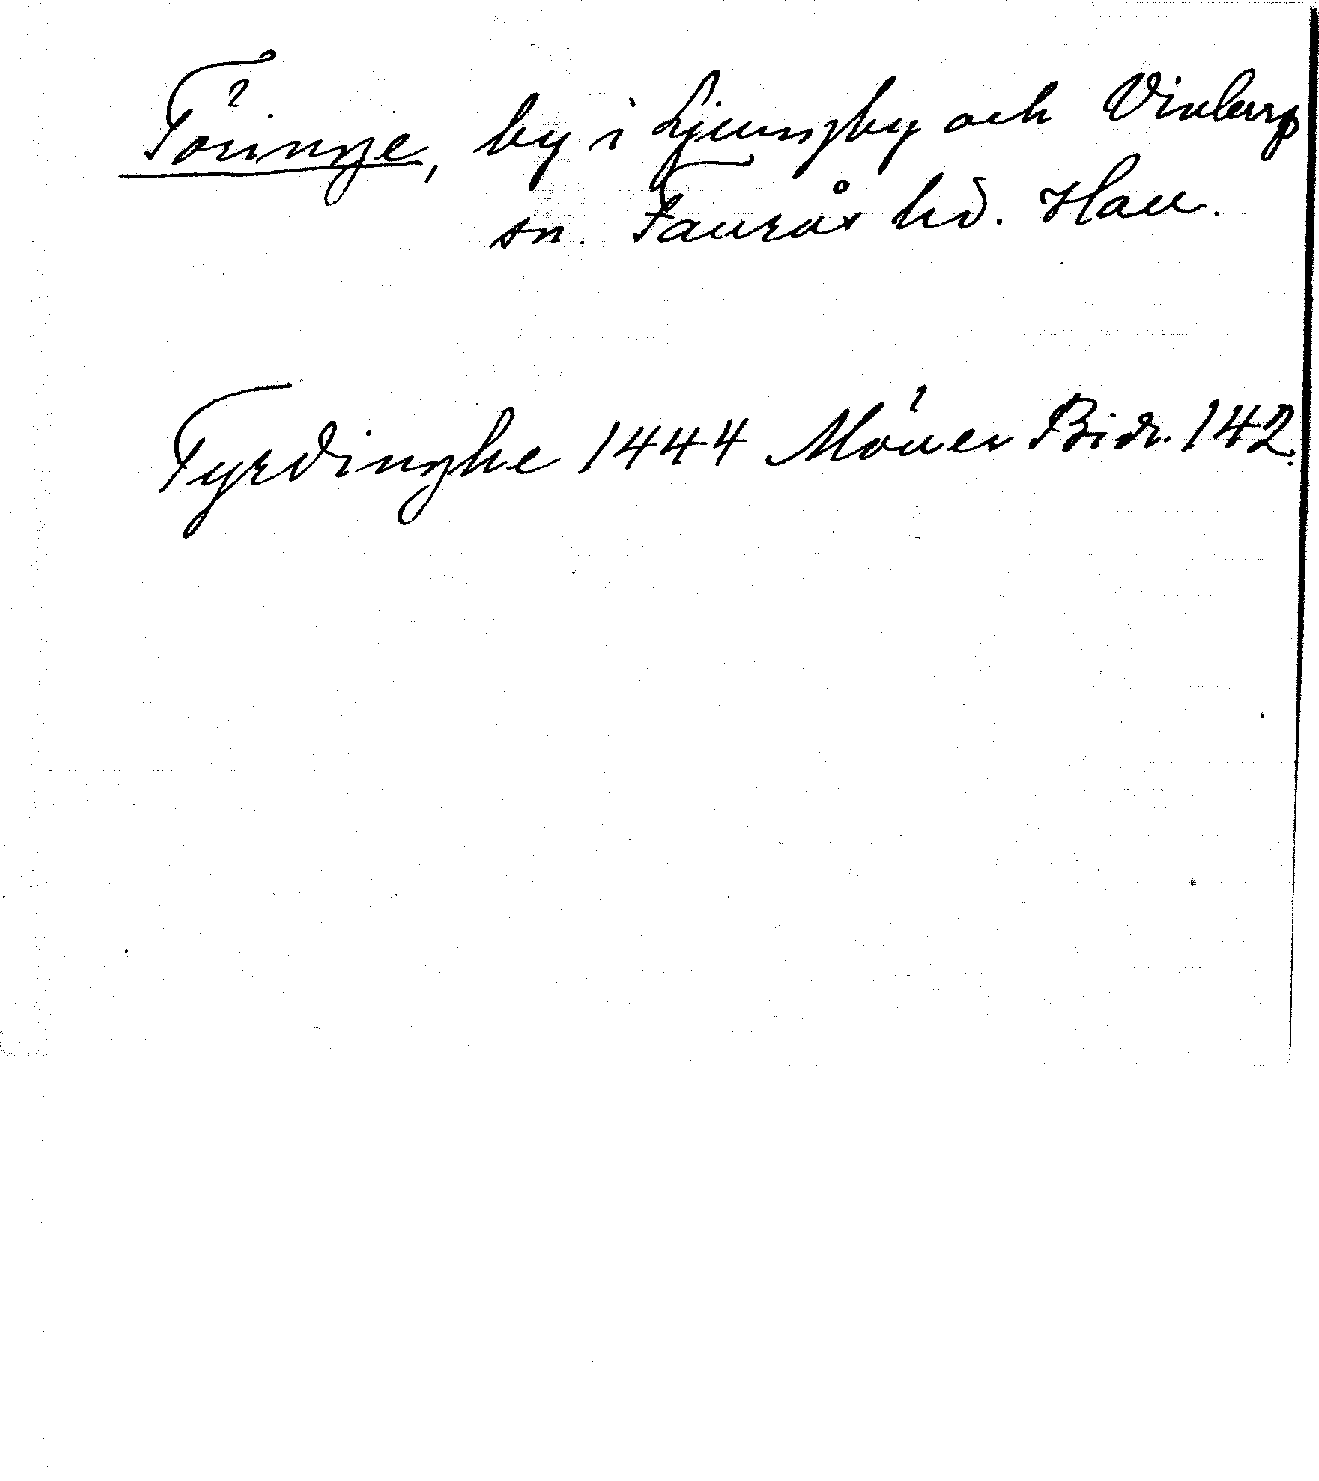 Töringe, by i Ljungby och Vinberg
sn. Faurås hd. Hall.
Tyrdinghe 1444 Möller Bidr. 142.